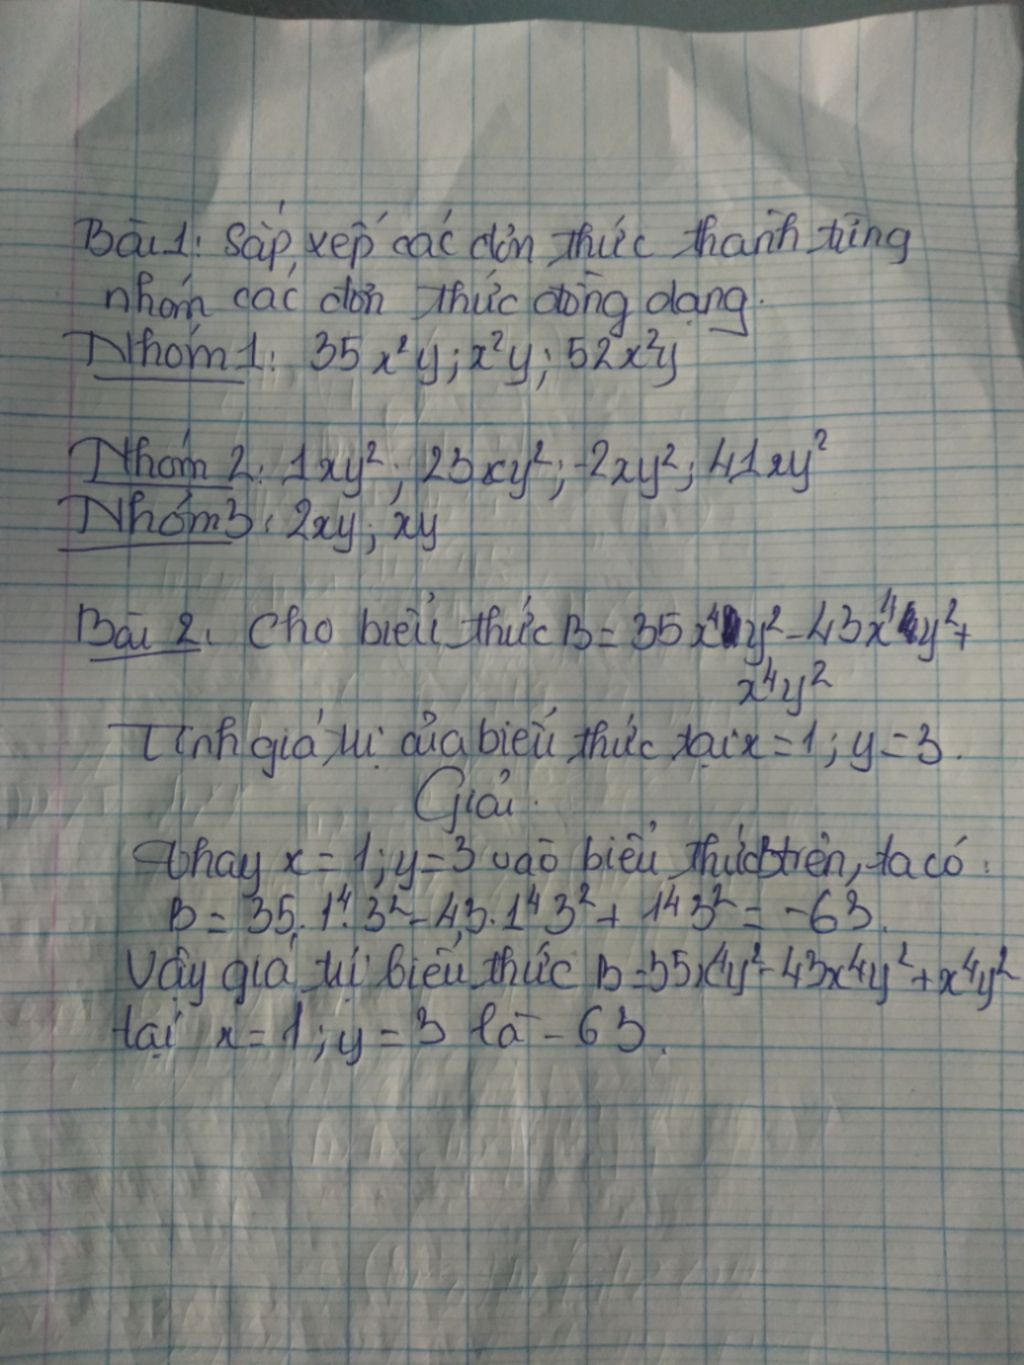 Bài 1: Sắp xếp các đơn thức thành từng
nhóm các đơn thức đồng dạng.
Nhóm 1: 35x²y; x²y; 52x²y
Nhóm 2: 1xy²; 23xy²; -2xy²; 41xy²
Nhóm 3: 2xy; xy
Bài 2. Cho biểu thức B = 35x⁴y² - 43x⁴y² +
x⁴y²
Tính giá trị của biểu thức tại x = 1; y = 3.
Giải.
Thay x = 1; y = 3 vào biểu thức B trên, ta có:
B = 35.1⁴.3² - 43.1⁴3² + 1⁴3² = -63.
Vậy giá trị biểu thức B = 35x⁴y² - 43x⁴y² + x⁴y²
tại x = 1; y = 3 là -63.